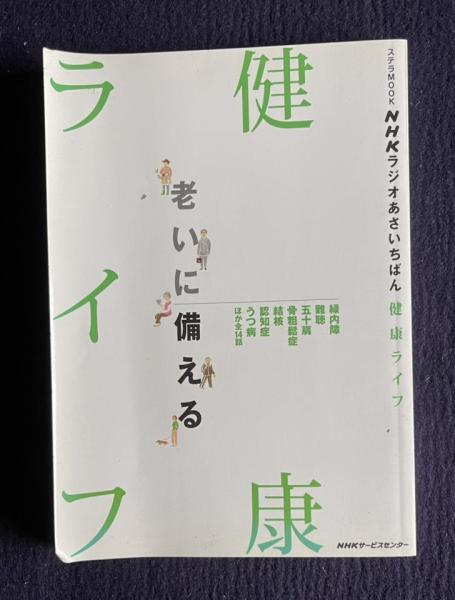 ステラMOOK
NHKラジオあさいちばん 健康ライフ
健康
ライフ
老いに備える
緑内障
難聴
五十肩
骨粗鬆症
結核
認知症
うつ病
ほか全14話
NHKサービスセンター